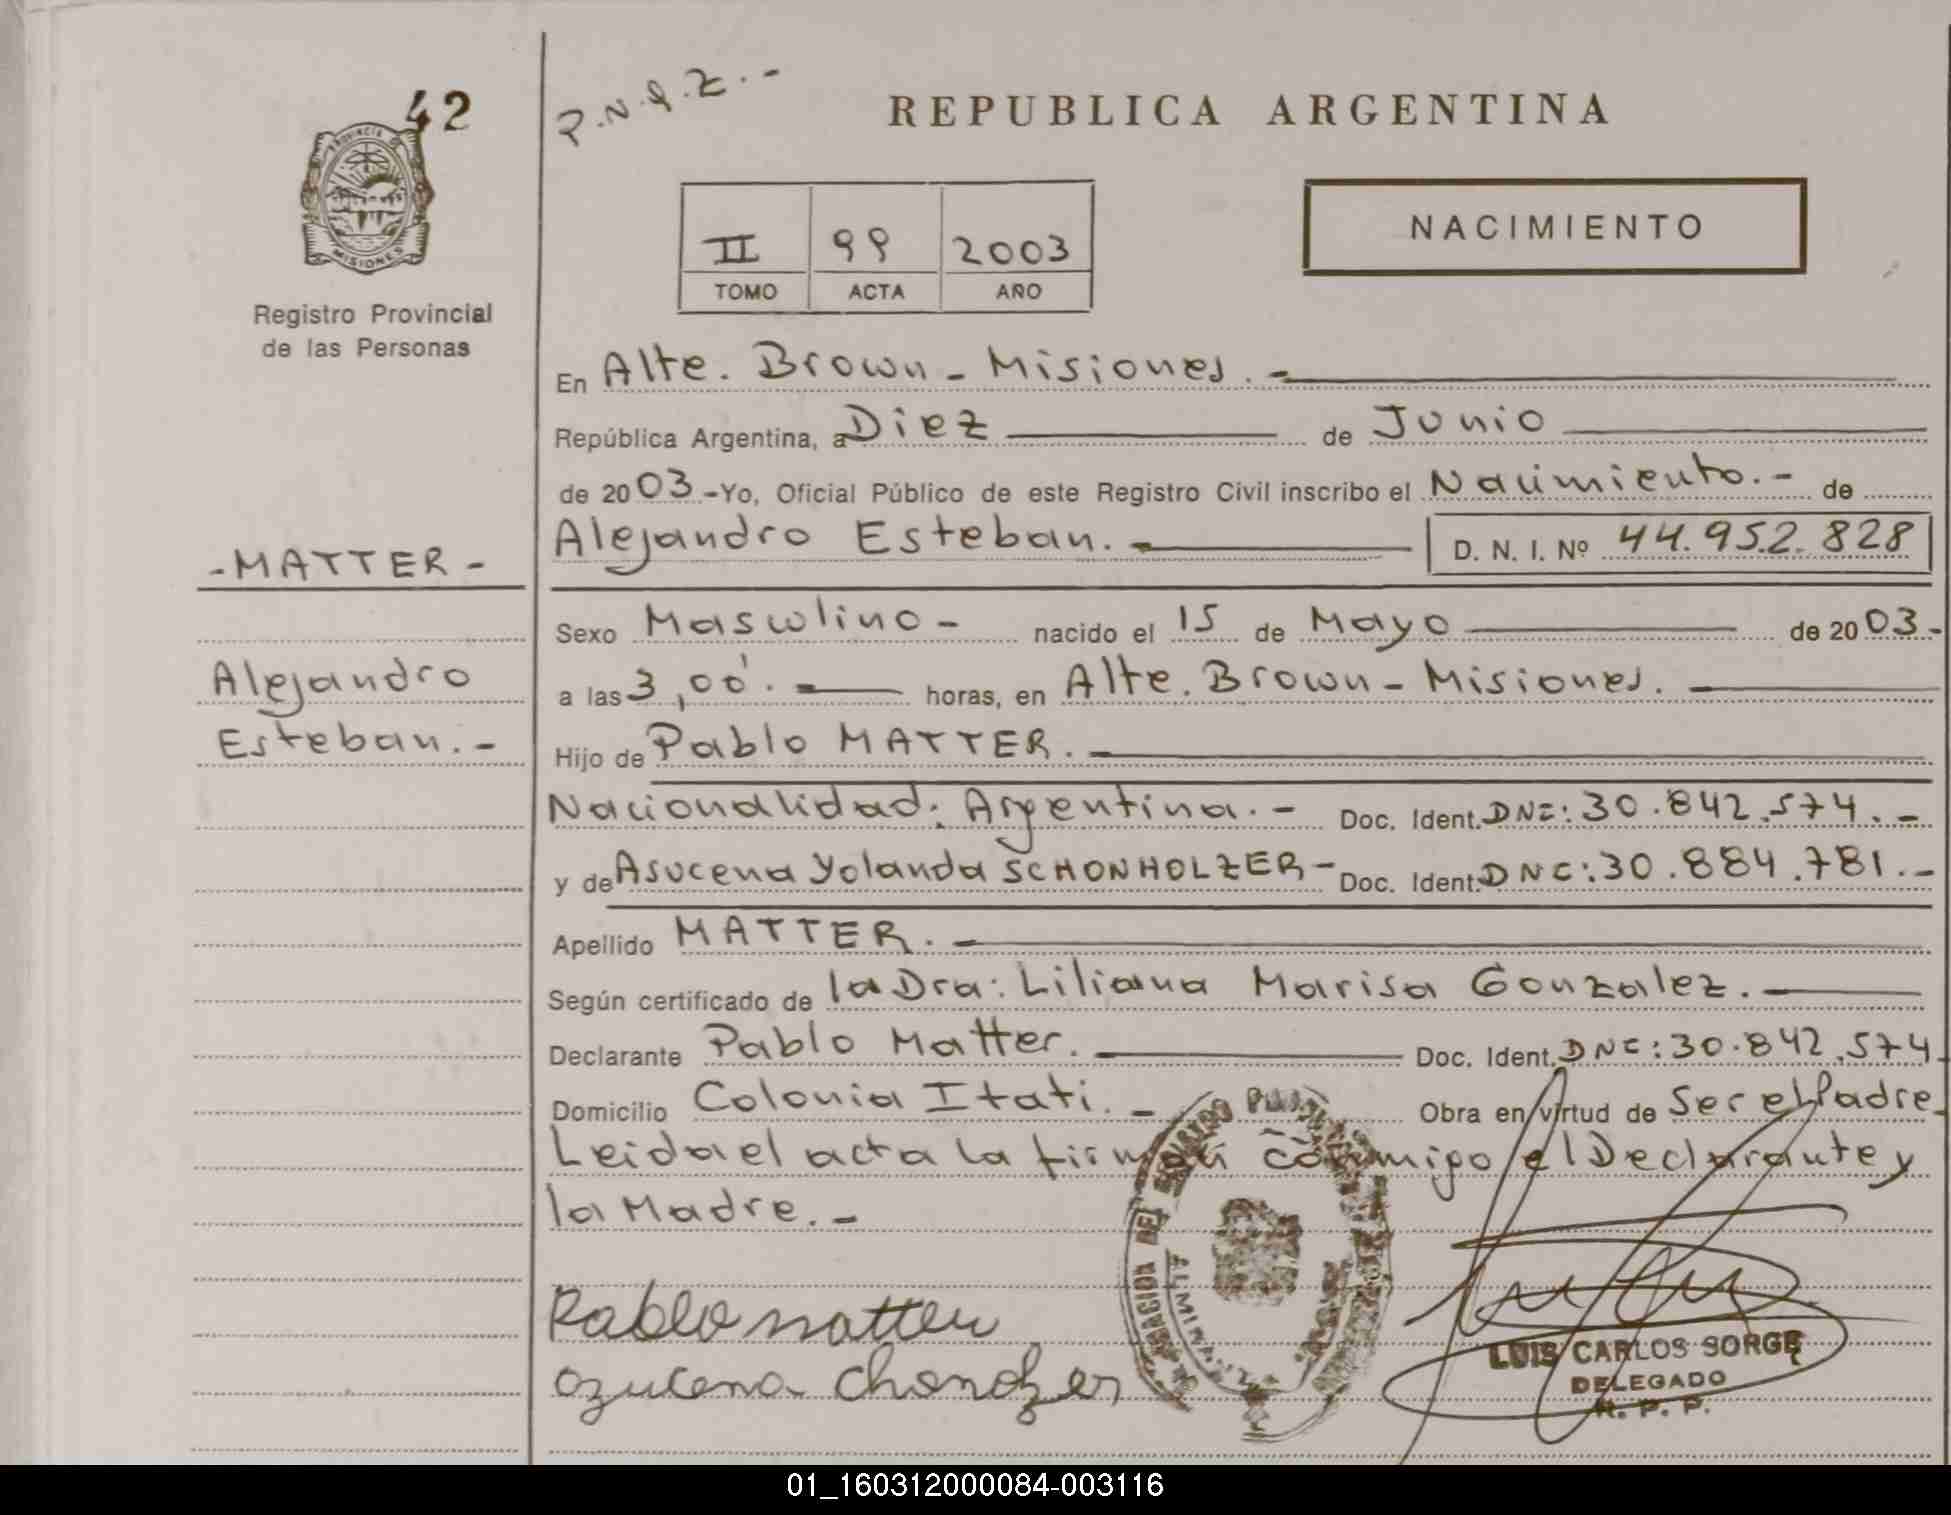 42
P.N.Q.Z.-
REPUBLICA ARGENTINA
PROVINCIA
MISIONES
Registro Provincial
de las Personas
II 99 2003
TOMO ACTA AÑO
NACIMIENTO
En Alte. Brown - Misiones.-
República Argentina, a Diez de Junio
de 2003.- Yo, Oficial Público de este Registro Civil inscribo el Nacimiento.- de
Alejandro Esteban.- D. N. I. Nº 44.952.828
- MATTER -
Alejandro
Esteban.-
Sexo Masculino - nacido el 15 de Mayo de 2003.-
a las 3,00'.- horas, en Alte. Brown - Misiones.-
Hijo de Pablo MATTER.-
Nacionalidad: Argentina.- Doc. Ident. DNI: 30.842.574.-
y de Asucena Yolanda SCHONHOLZER - Doc. Ident. DNI: 30.884.781.-
Apellido MATTER.-
Según certificado de la Dra: Liliana Marisa Gonzalez.-
Declarante Pablo Matter.- Doc. Ident. DNI: 30.842.574.
Domicilio Colonia Itati.- Obra en virtud de Ser el Padre.
Leida el acta la firman conmigo el Declarante y
la Madre.-
Pablo matter
azucena chonolzer
LUIS CARLOS SORGE
DELEGADO
R. P. P.
01_160312000084-003116